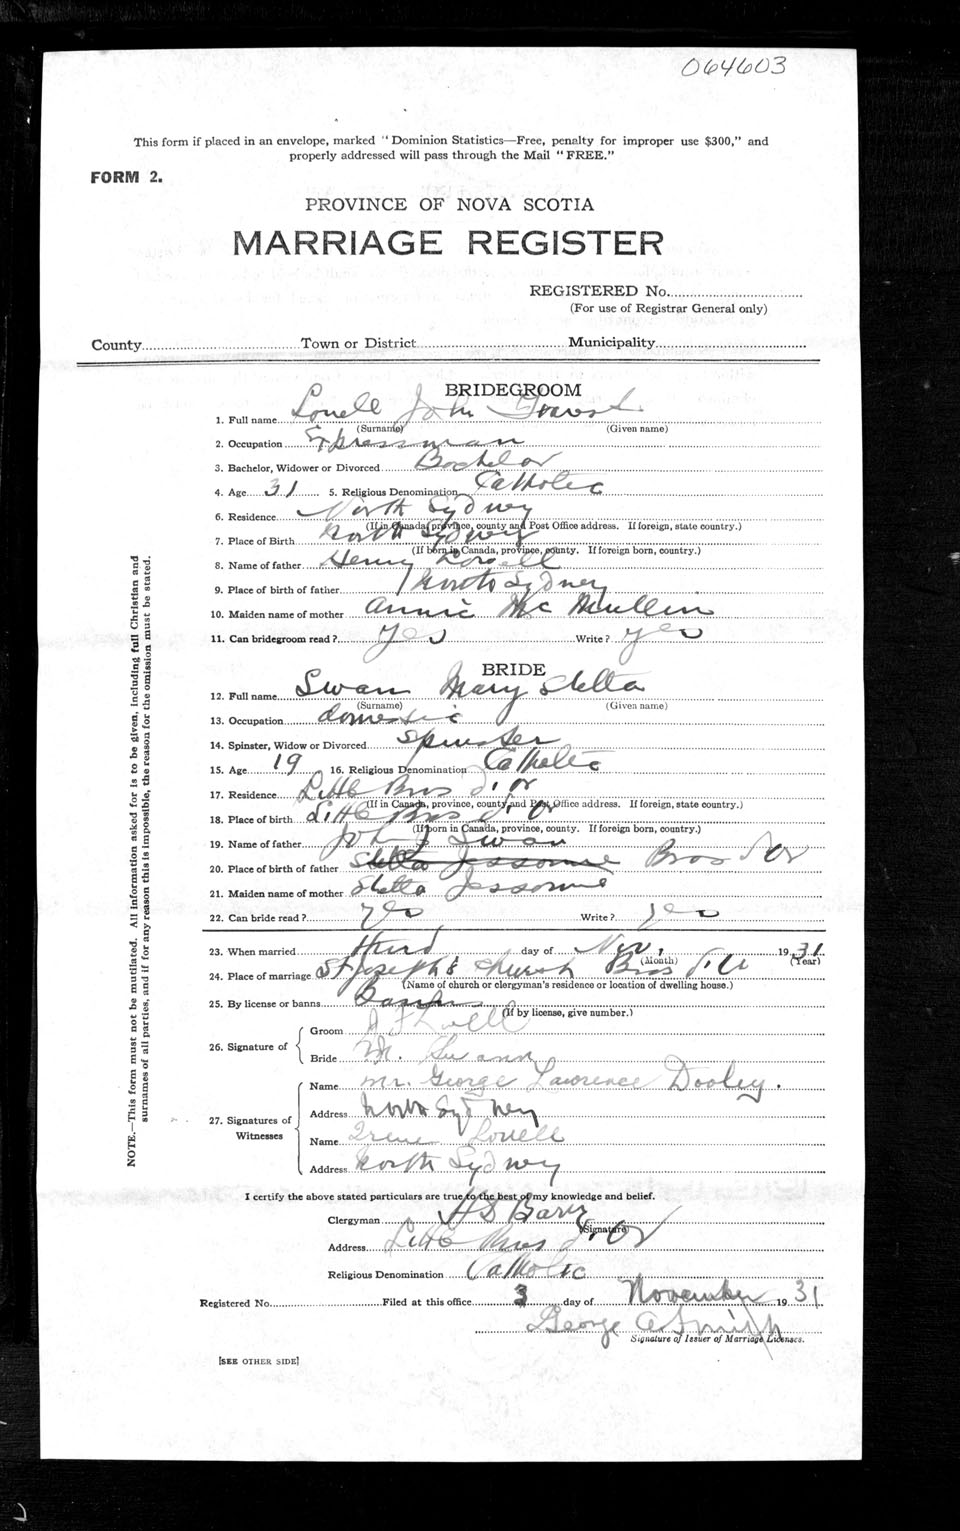 064603
This form if placed in an envelope, marked "Dominion Statistics—Free, penalty for improper use $300," and
properly addressed will pass through the Mail "FREE."
FORM 2.
PROVINCE OF NOVA SCOTIA
MARRIAGE REGISTER
REGISTERED No.
(For use of Registrar General only)
County Town or District Municipality
BRIDEGROOM
1. Full name Lovell John
(Surname) (Given name)
2. Occupation Expressman
3. Bachelor, Widower or Divorced Bachelor
4. Age 31 5. Religious Denomination Catholic
6. Residence North Sydney
(If in Canada, province, county and Post Office address. If foreign, state country.)
7. Place of Birth North Sydney
(If born in Canada, province, county. If foreign born, country.)
8. Name of father Henry Lovell
9. Place of birth of father North Sydney
10. Maiden name of mother Annie McMullin
11. Can bridegroom read? Yes Write? yes
BRIDE
12. Full name Swan Mary Stella
(Surname) (Given name)
13. Occupation domestic
14. Spinster, Widow or Divorced Spinster
15. Age 19 16. Religious Denomination Catholic
17. Residence Little Bras d'Or
(If in Canada, province, county and Post Office address. If foreign, state country.)
18. Place of birth Little Bras d'Or
(If born in Canada, province, county. If foreign born, country.)
19. Name of father John J Swan
20. Place of birth of father Stella Jessome Bras d'Or
21. Maiden name of mother Stella Jessome
22. Can bride read? yes Write? yes
23. When married third day of Nov. 1931
(Month) (Year)
24. Place of marriage St Joseph's Church Bras
(Name of church or clergyman's residence or location of dwelling house.)
25. By license or banns Banns
(If by license, give number.)
26. Signature of Groom J F Lovell
Bride M. Swann
27. Signatures of Witnesses
Name Mr. George Lawrence Dooley.
Address North Sydney
Name Irene Lovell
Address North Sydney
I certify the above stated particulars are true to the best of my knowledge and belief.
Clergyman
(Signature)
Address Little Bras d'Or
Religious Denomination Catholic
Registered No. Filed at this office 3 day of November 1931.
George A Smith
Signature of Issuer of Marriage Licenses.
[SEE OTHER SIDE]
NOTE.—This form must not be mutilated. All information asked for is to be given, including full Christian and
surnames of all parties, and if for any reason this is impossible, the reason for the omission must be stated.